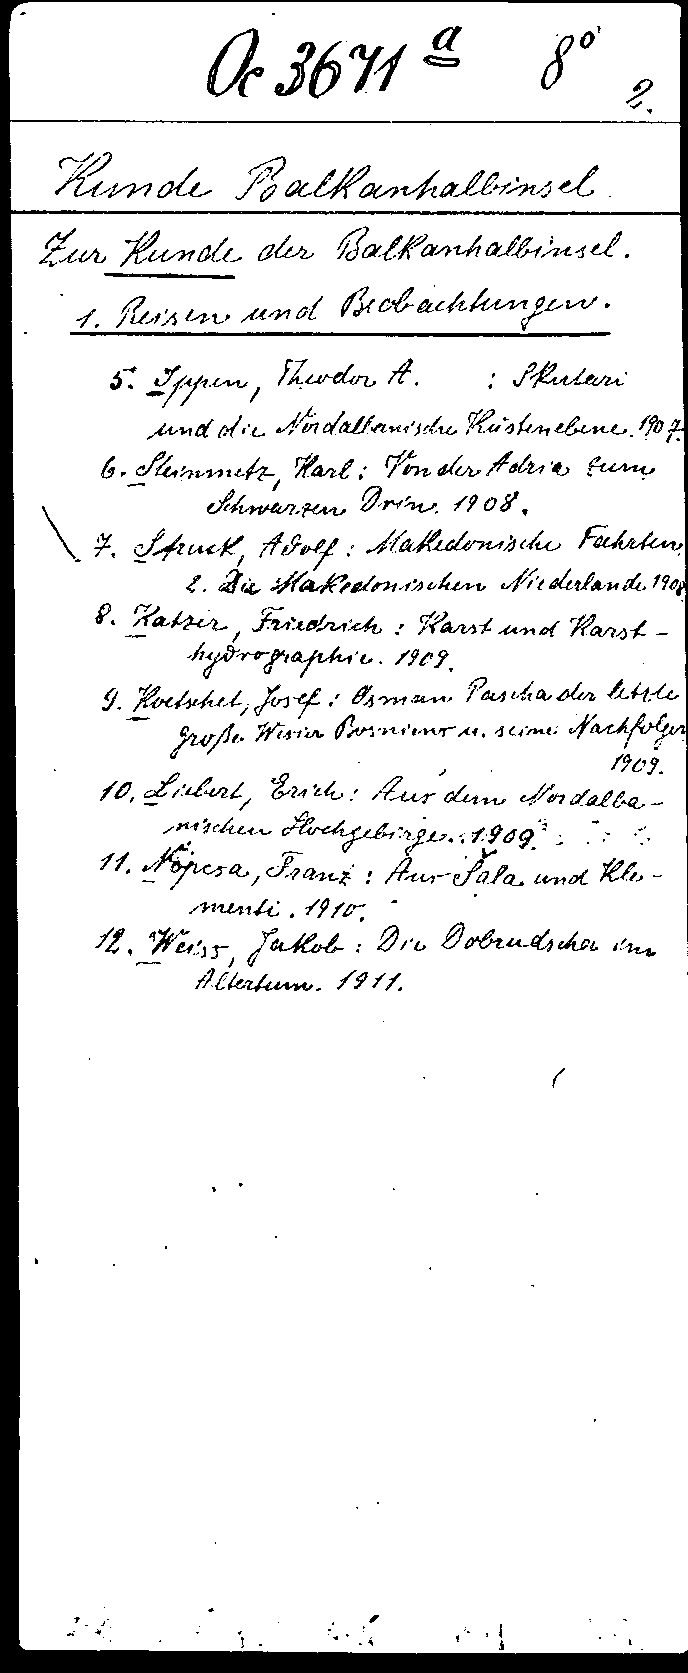 Oc 3671 a 8°
2.
Kunde Balkanhalbinsel
Zur Kunde der Balkanhalbinsel.
1. Reisen und Beobachtungen.
5. Ippen, Theodor A. : Skutari
und die Nordalbanische Küstenebene. 1907.
6. Steinmetz, Karl: Von der Adria zum
Schwarzen Drin. 1908.
7. Struck, Adolf: Makedonische Fahrten.
2. Die Makedonischen Niederlande 1908
8. Katzer, Friedrich: Karst und Karst-
hydrographie. 1909.
9. Koetschet, Josef: Osman Pascha der letzte
große Wesier Bosniens u. seine Nachfolger
1909.
10. Liebert, Erich: Aus dem Nordalba-
nischen Hochgebirge. 1909.
11. Nopcsa, Franz: Aus Šala und Kle-
menti. 1910.
12. Weiss, Jakob: Die Dobrudscha im
Altertum. 1911.